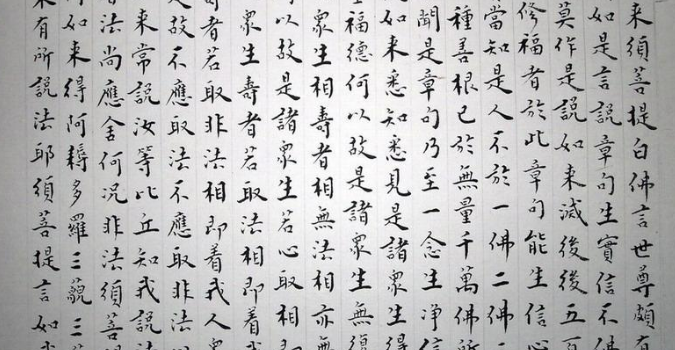 来須菩提白佛言世尊頗有
如是言說章句生實信不佛
莫作是説如来滅後後五百
修福者於此章句能生信心
當知是人不於一佛二佛
種善根已於無量千萬佛所
聞是章句乃至一念生净信
如来悉知悉見是諸衆生得
福德何以故是諸衆生無復
衆生相壽者相無法相亦無
以故是諸衆生若心取相即
衆生壽者若取法相即着我
壽者若取非法相即着我人衆
是故不應取法不應取非法以
来常説汝等比丘知我説法
法尚應舍何況非法須菩
如来得阿耨多羅三藐三菩
来有所説法耶須菩提言如我